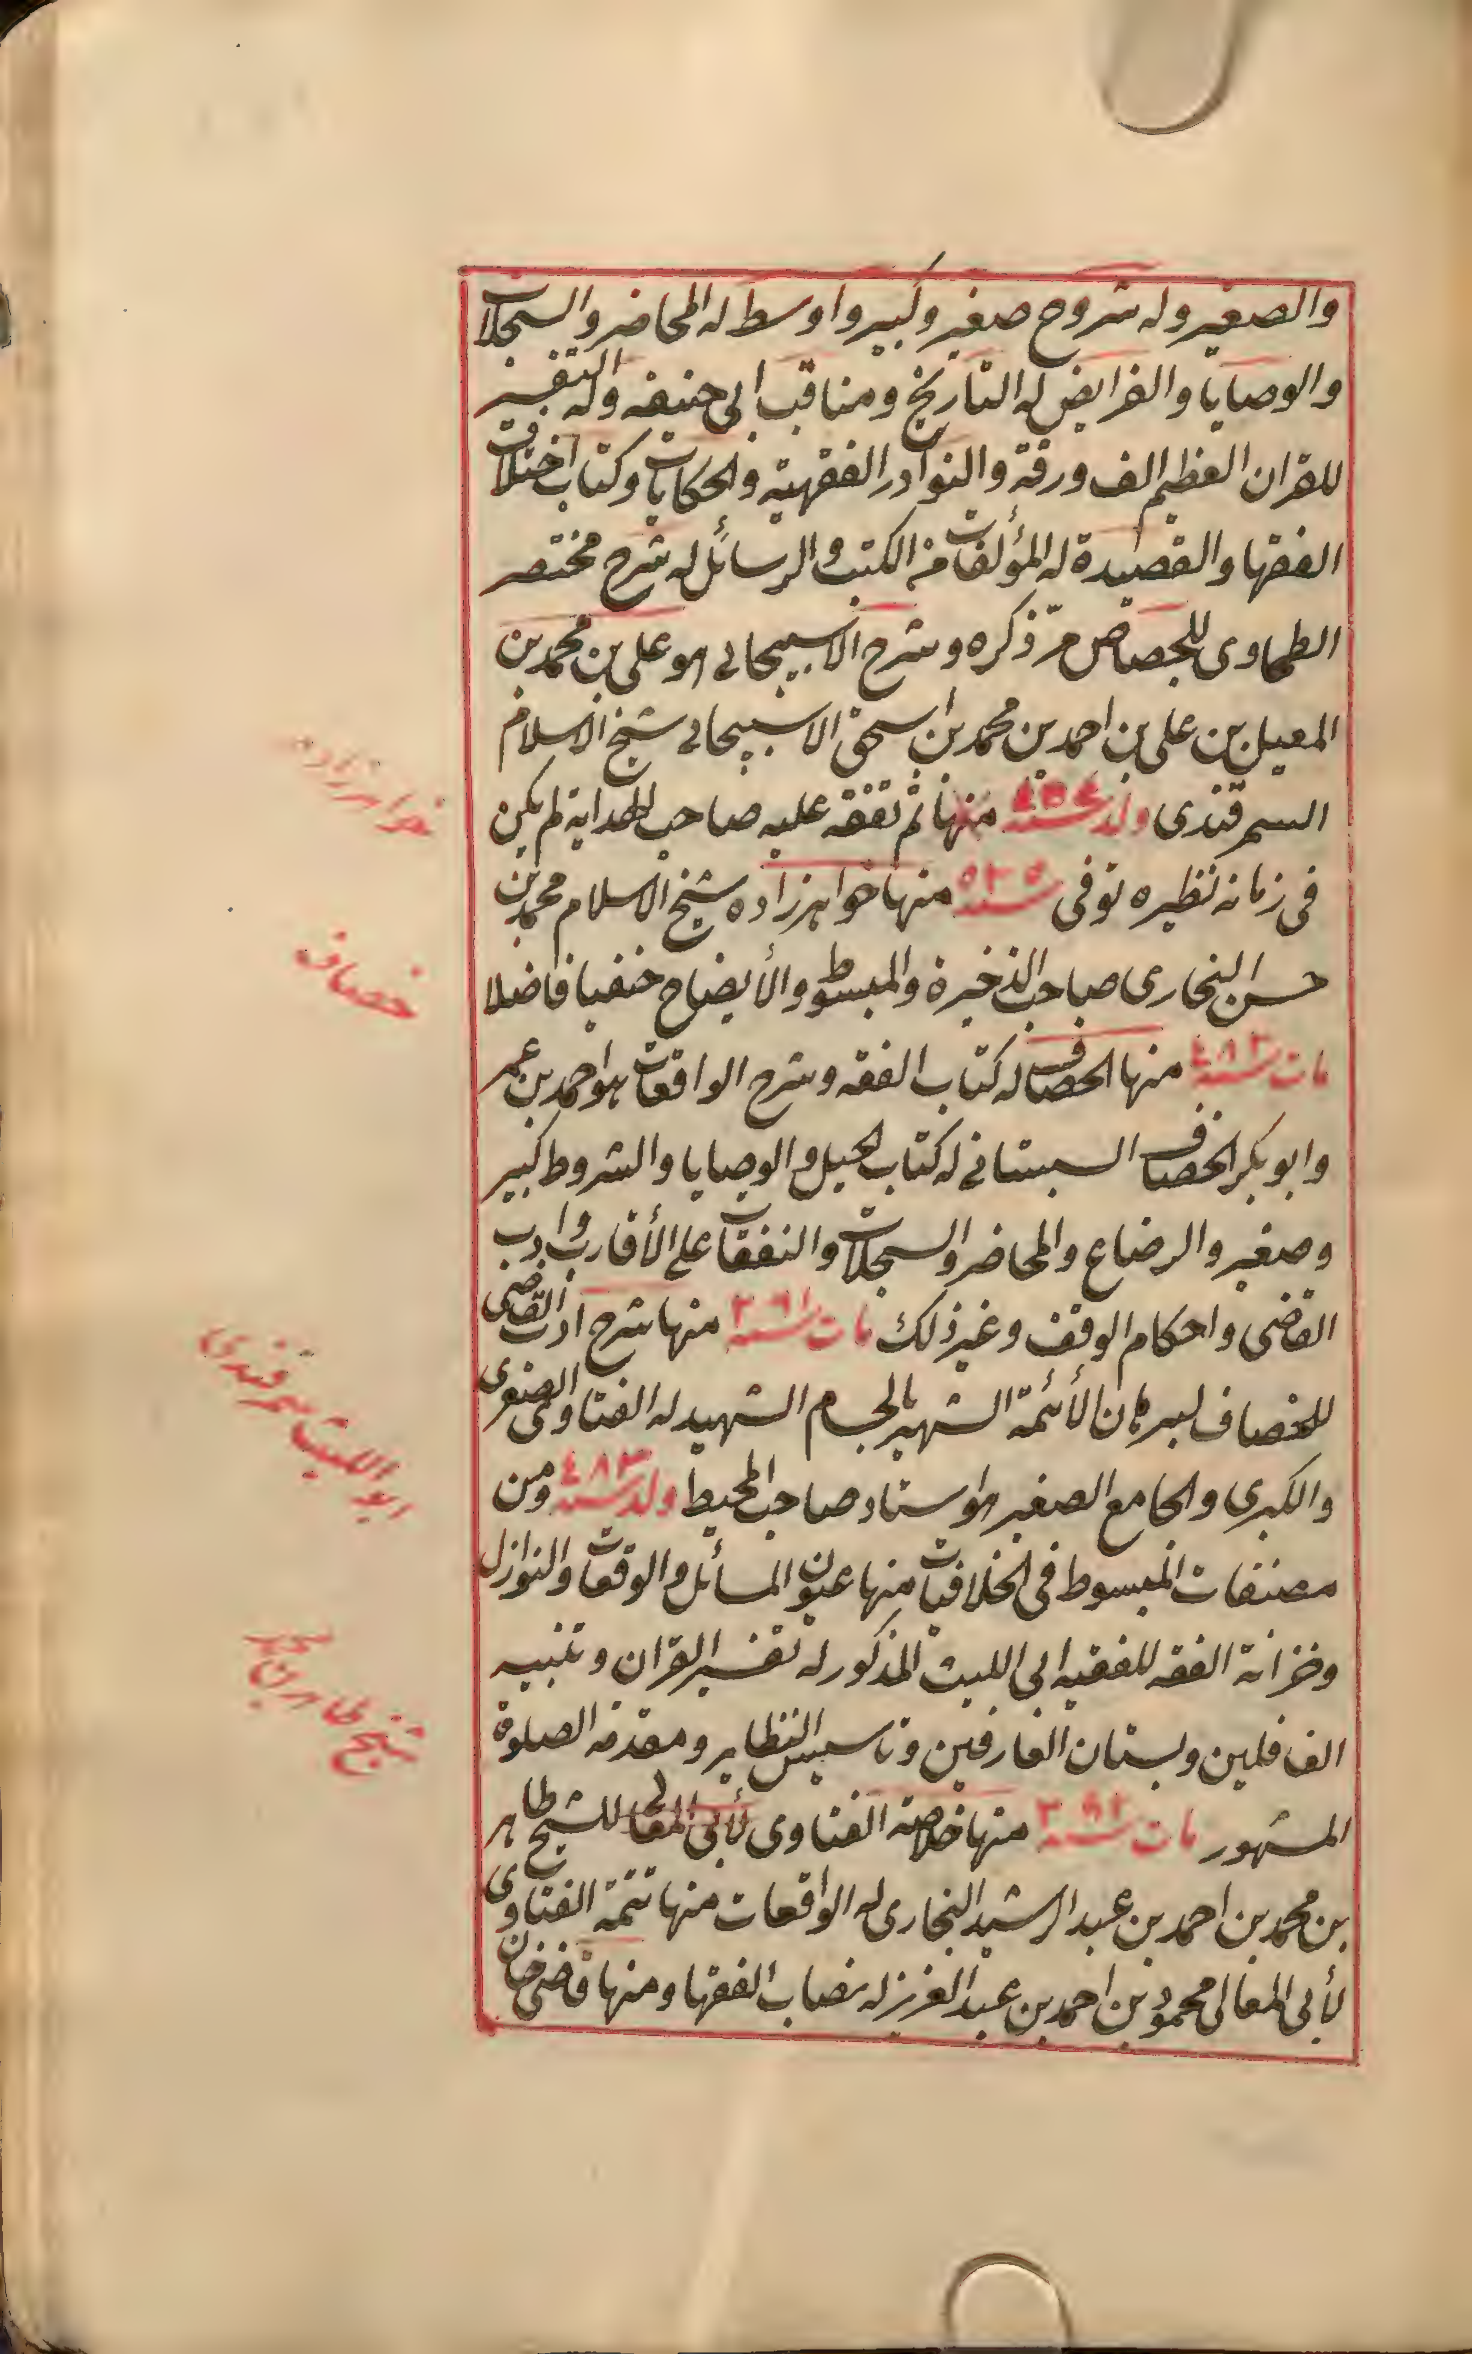 والصغير وله شروح صغير وكبير واوسط له المحاضر والسجلات
والوصايا والفرايض له التاريخ ومناقب ابى حنيفه وله التفسير
للقران العظيم الف ورقة والنوادر الفقهية والحكايات وكتاب اختلاف
الفقها والقصيدة له المؤلفات من الكتب والرسائل له شرح مختصر
الطحاوى للجصاص مرّ ذكره وشرح الاسبيجابى هو على بن محمد بن
المعيل بن على بن احمد بن محمد بن اسحق الاسبيجابى شيخ الاسلام
السمرقندى ولد سنة ٤٥٤ منها ثم تفقه عليه صاحب الهداية لم يكن
فى زمانه نظيره توفى سنة ٥٣٥ منها خواهرزاده شيخ الاسلام محمد بن
حسن البخارى صاحب الذخيرة والمبسوط والأيضاح حنفيا فاضلا
مات سنة ٤٨٣ منها الخصاف له كتاب الفقه وشرح الواقعات هو احمد بن عمر
وابو بكر الخصاف السبستانى له كتاب الحيل والوصايا والشروط كبير
وصغير والرضاع والمحاضر والسجلات والنفقات على الأقارب وادب
القاضى واحكام الوقف وغير ذلك مات سنة ٢٦١ منها شرح ادب القاضى
للخصاف لبرهان الأئمة الشهير بالحسام الشهيد له الفتاوى الصغرى
والكبرى والجامع الصغير هو استاد صاحب المحيط ولد سنة ٤٨٣ ومن
مصنفات المبسوط فى الخلافيات منها عيون المسائل والوقعات والنوازل
وخزانة الفقه للفقيه ابى الليث المذكور له تفسير القران وتنبيه
الغافلين وبستان العارفين وتاسيس النظاير ومقدمه الصلوة
المشهور مات سنة ٣٨٣ منها خلاصة الفتاوى لأبى المعالى للشيخ طاهر
بن محمد بن احمد بن عبد الرشيد البخارى له الواقعات منها تتمة الفتاوى
لأبى المعالى محمود بن احمد بن عبد العزيز له نصاب الفقها ومنها قاضى خان
خواهرزاده
خصاف
ابو الليث سمرقندى
شيخ طاهر بن محمد